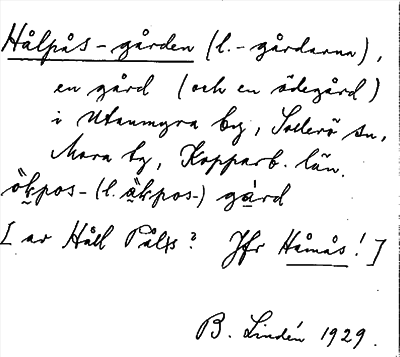 Hålpås-gården (l.-gårdarna),
en gård (och en ödegård)
i Utanmyra by, Sollerö sn,
Mora tg, Kopparb. län.
ökpos- (l. åkpos-) gård
[ av Håll Påls? Jfr Håmås! ]
B. Lindén 1929.